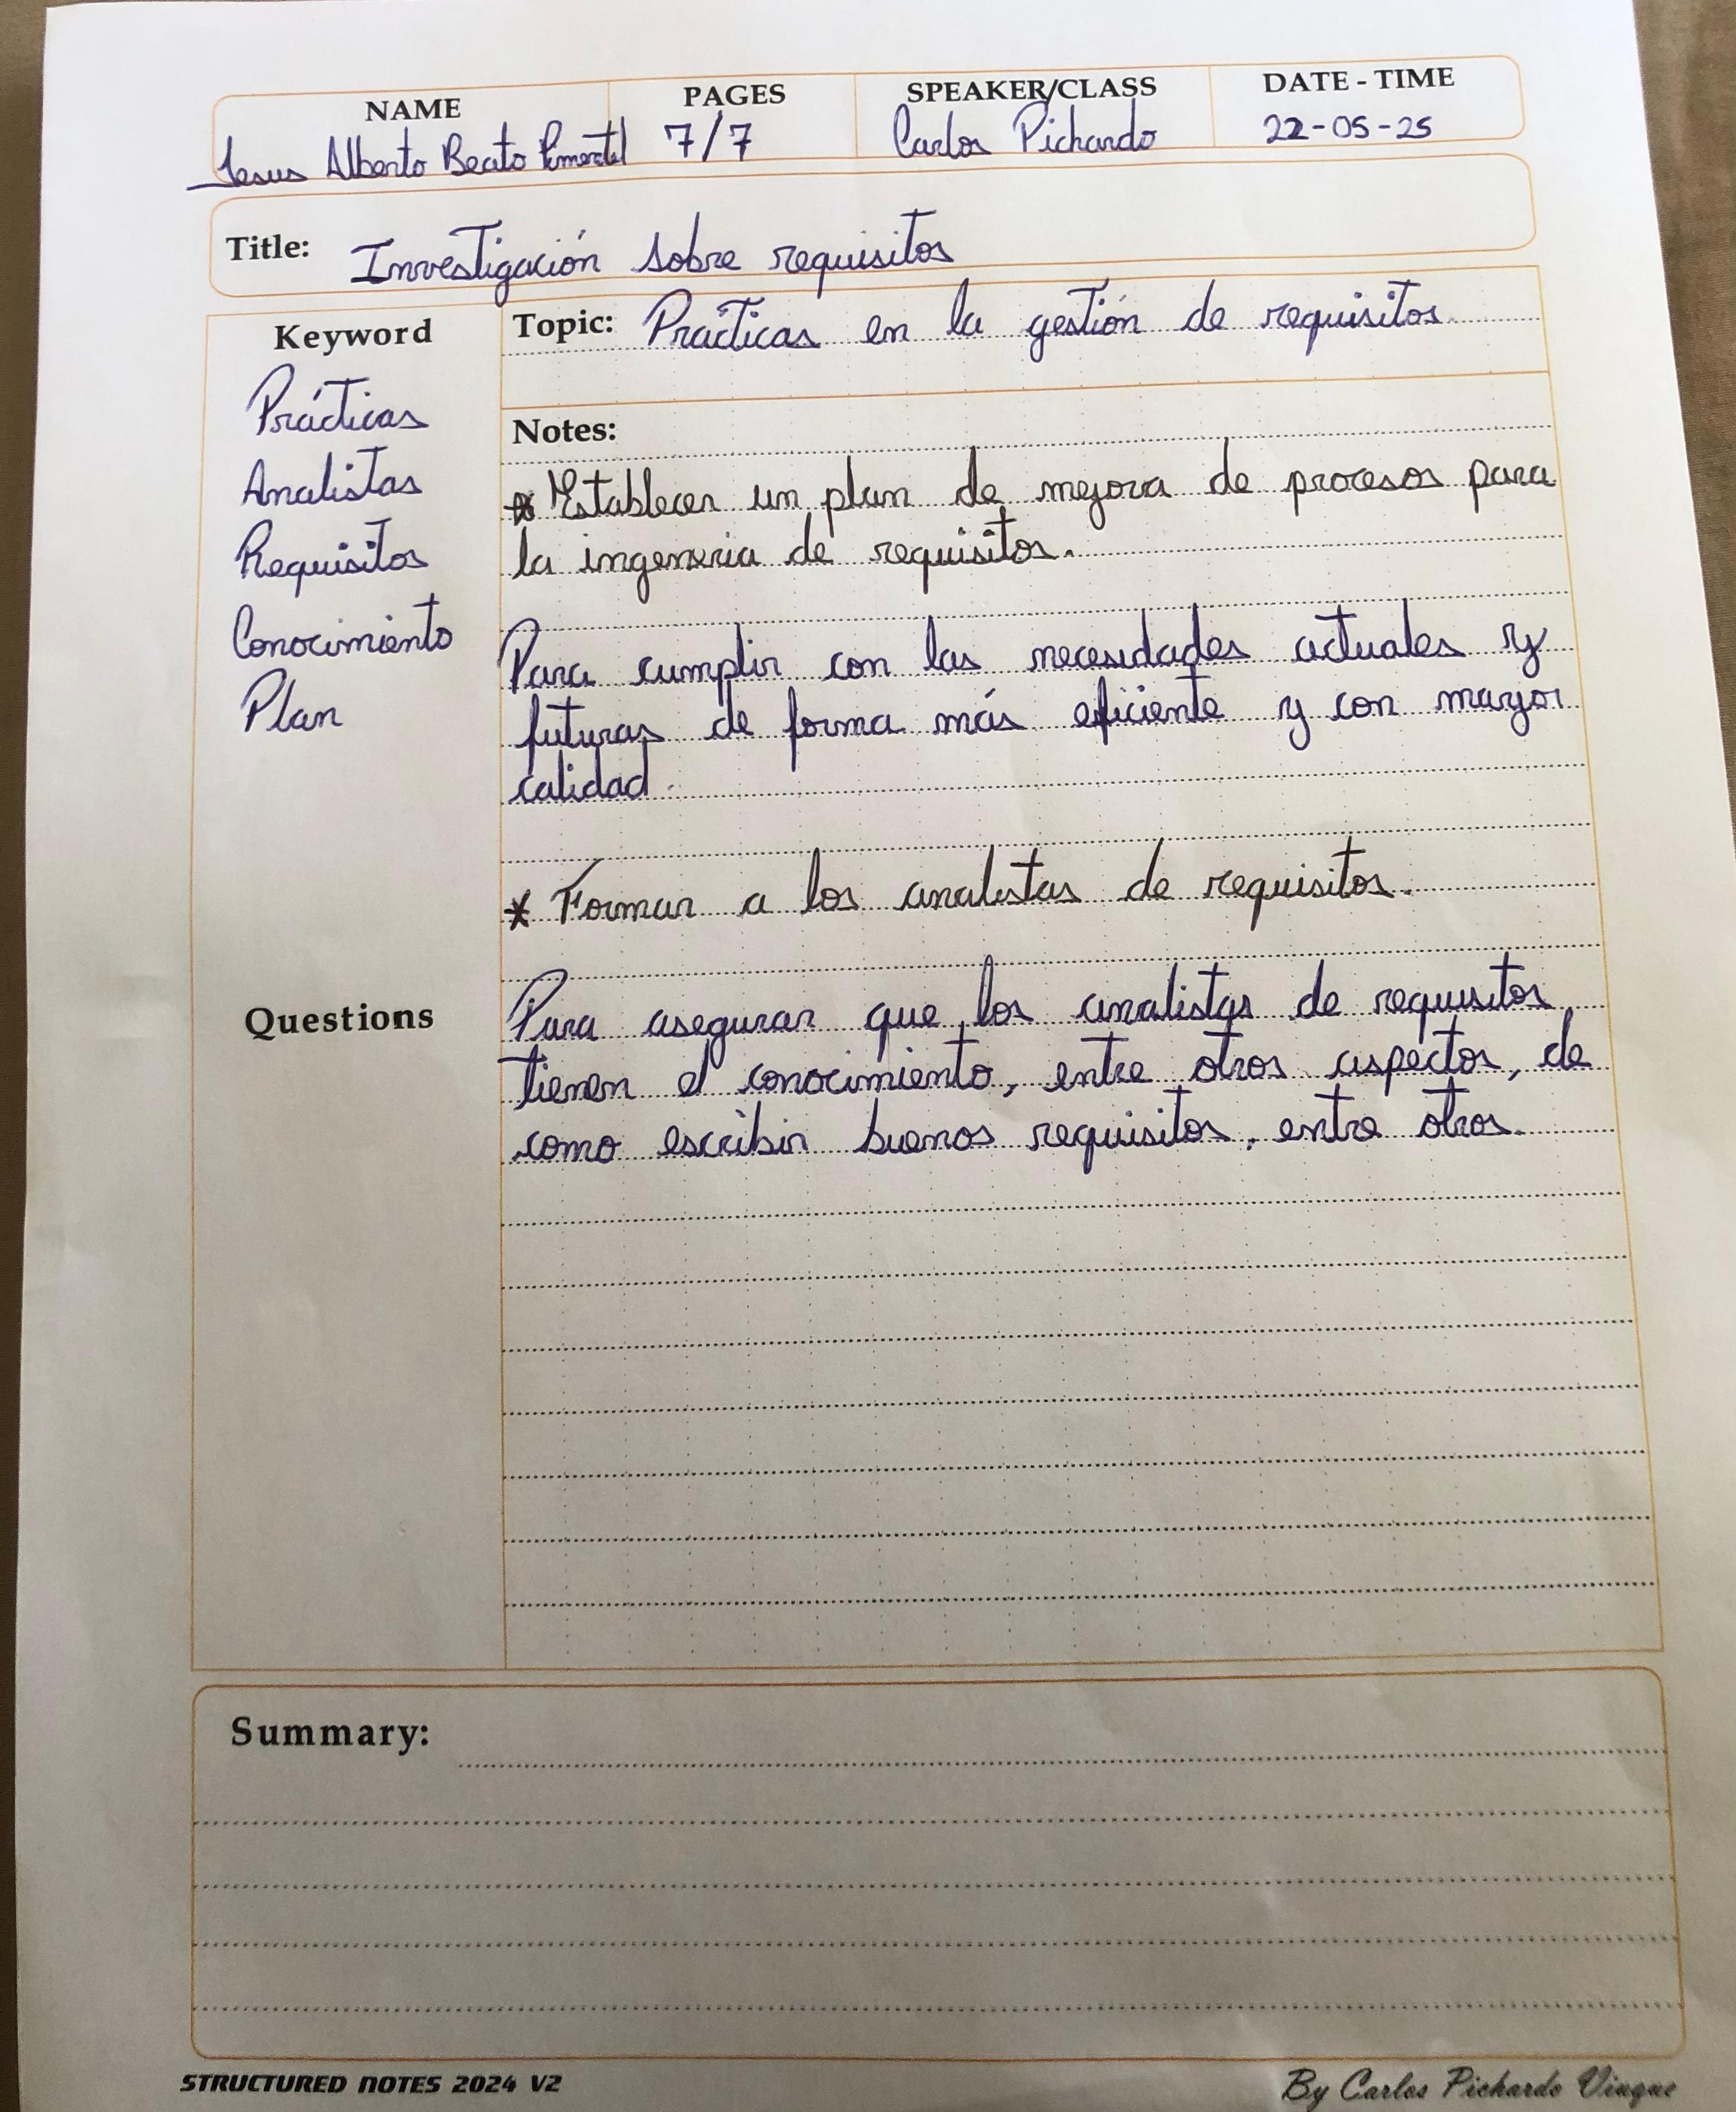 NAME PAGES SPEAKER/CLASS DATE - TIME
Jesus Alberto Beato Pimentel 7/7 Carlos Pichardo 22-05-25
Title: Investigación sobre requisitos
Keyword
Prácticas
Analistas
Requisitos
Conocimiento
Plan
Topic: Prácticas en la gestión de requisitos.
Notes:
* Establecer un plan de mejora de procesos para
la ingenieria de requisitos.
Para cumplir con las necesidades actuales y
futuras de forma más eficiente y con mayor
calidad.
* Formar a los analistas de requisitos.
Para asegurar que los analistas de requisitos
tienen el conocimiento, entre otros aspectos, de
como escribir buenos requisitos, entre otros.
Questions
Summary:
STRUCTURED NOTES 2024 V2
By Carlos Pichardo Viuque